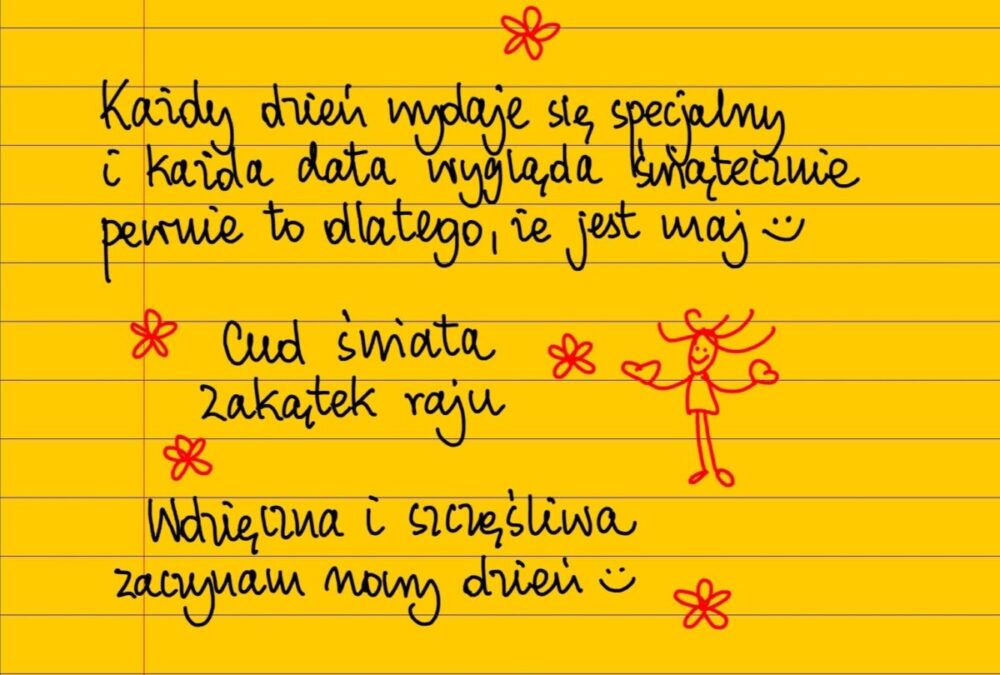 Każdy dzień wydaje się specjalny
i każda data wygląda świątecznie
pewnie to dlatego, że jest maj :)
Cud świata
zakątek raju
Wdzięczna i szczęśliwa
zaczynam nowy dzień :)